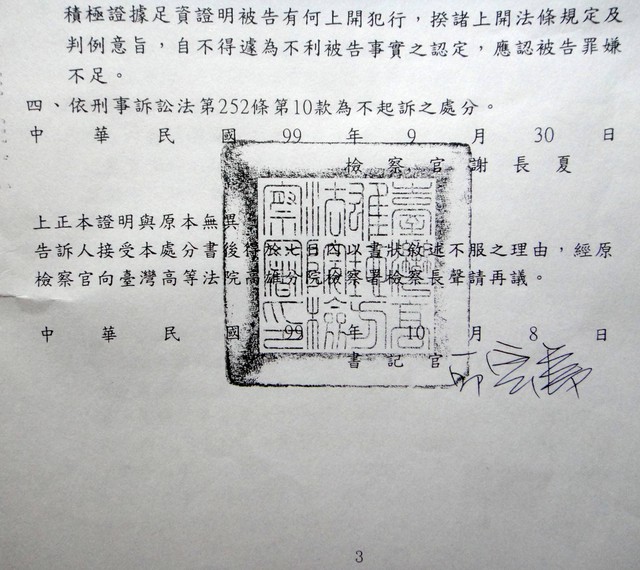 積極證據足資證明被告有何上開犯行，揆諸上開法條規定及
判例意旨，自不得遽為不利被告事實之認定，應認被告罪嫌
不足。
四、依刑事訴訟法第252條第10款為不起訴之處分。
中華民國99年9月30日
檢察官謝長夏
上正本證明與原本無異
告訴人接受本處分書後得於七日內以書狀敘述不服之理由，經原
檢察官向臺灣高等法院高雄分院檢察署檢察長聲請再議。
中華民國99年10月8日
書記官
3